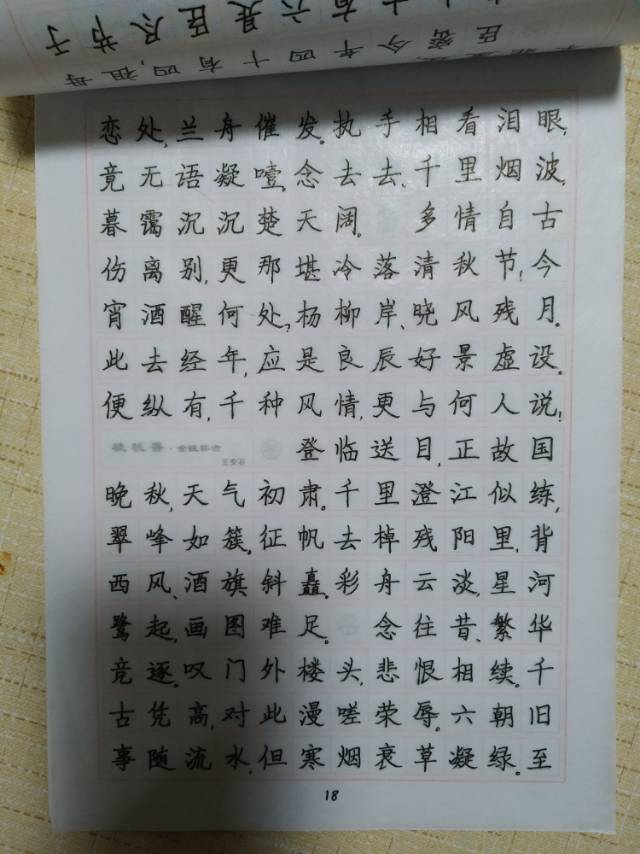 臣密今年四十有四,祖母
有六是臣尽节于
恋处,兰舟催发。执手相看泪眼,
竞无语凝噎。念去去、千里烟波,
暮霭沉沉楚天阔。 多情自古
伤离别,更那堪冷落清秋节!今
宵酒醒何处,杨柳岸、晓风残月。
此去经年,应是良辰好景虚设。
便纵有,千种风情,更与何人说!
桂枝香·金陵怀古 王安石 登临送目,正故国
晚秋,天气初肃。千里澄江似练,
翠峰如簇。征帆去棹残阳里,背
西风、酒旗斜矗。彩舟云淡,星河
鹭起,画图难足。 念往昔、繁华
竞逐。叹门外楼头,悲恨相续。千
古凭高,对此漫嗟荣辱。六朝旧
事随流水,但寒烟衰草凝绿。至
18